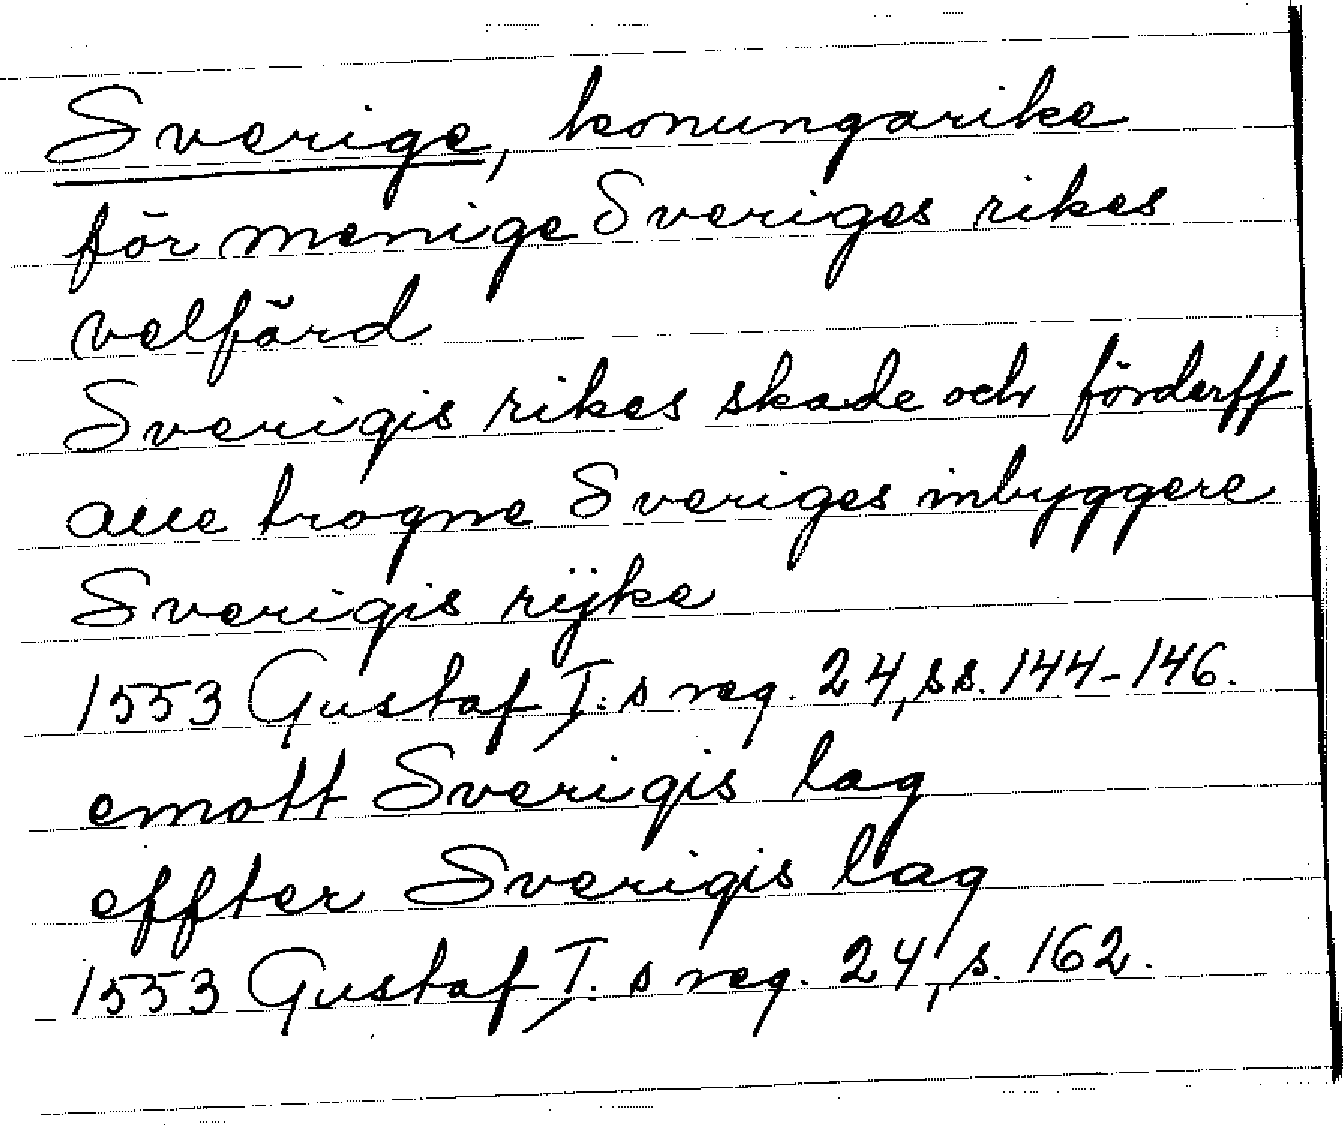 Sverige, konungarike
för menige Sveriges rikes
velfärd
Sverigis rikes skade och förderff
alle trogne Sveriges inbyggere
Sverigis rijke
1553 Gustaf I:s reg. 24, ss. 144-146.
emott Sverigis lag
effter Sverigis lag
1553 Gustaf I:s reg. 24, s. 162.